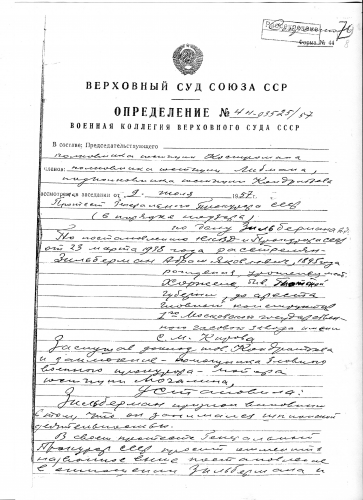 Форма № 44
ВЕРХОВНЫЙ СУД СОЮЗА ССР
ОПРЕДЕЛЕНИЕ № 4н-03525/57
ВОЕННАЯ КОЛЛЕГИЯ ВЕРХОВНОГО СУДА СССР
В составе: Председательствующего
полковника юстиции
членов: полковника юстиции Лебмана,
подполковника юстиции Кондратова
рассмотрев в заседании от 2 июля 1957 г.
Протест Генерального Прокурора СССР
(в порядке надзора)
по делу Зильбермана А.Я.
По постановлению НКВД и Прокурора СССР
от 23 марта 1938 года расстрелян
Зильберман Абрам Яковлевич, 1895 года
рождения, уроженец гор.
губернии, до ареста
главный конструктор
1го Московского государствен-
ного часового завода имени
С. М. Кирова
Заслушав доклад тов. Кондратова
и заключение помощника Главного
военного прокурора майора
юстиции
Установила:
Зильберман признан виновным
в том, что он занимался шпионской
деятельностью.
В своем протесте Генеральный
Прокурор СССР просит отменить
постановление
в отношении Зильбермана и